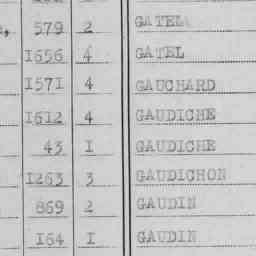 579 2 GATEL
1656 4 GATEL
1571 4 GAUCHARD
1612 4 GAUDICHE
43 I GAUDICHE
1263 3 GAUDICHON
869 2 GAUDIN
164 I GAUDIN